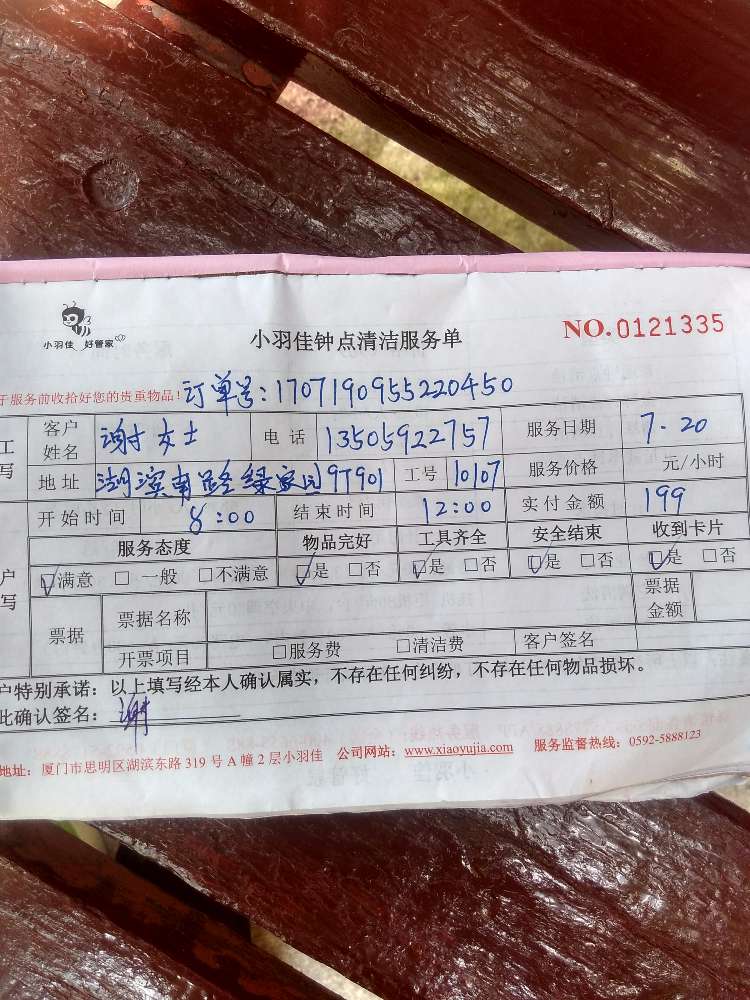 小羽佳 好管家
小羽佳钟点清洁服务单
NO. 0121335
于服务前收拾好您的贵重物品！订单号：1707190955220450
工 客户姓名 谢女士 电话 13505922757 服务日期 7.20
写 地址 湖滨南路绿家园97901 工号 10107 服务价格 元/小时
开始时间 8:00 结束时间 12:00 实付金额 199
服务态度 物品完好 工具齐全 安全结束 收到卡片
户 ☑满意 □一般 □不满意 ☑是 □否 ☑是 □否 ☑是 □否 ☑是 □否
写 票据 票据名称 票据金额
开票项目 □服务费 □清洁费 客户签名
户特别承诺：以上填写经本人确认属实，不存在任何纠纷，不存在任何物品损坏。
此确认签名：谢
地址：厦门市思明区湖滨东路 319 号 A 幢 2 层小羽佳 公司网站：www.xiaoyujia.com 服务监督热线：0592-5888123